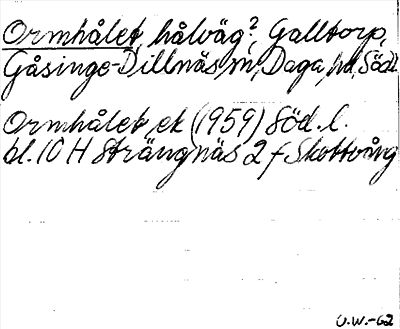 Ormhålet, hålväg?, Galltorp,
Gåsinge-Dillnäs, sn, Daga, hd, Södl
Ormhålet, ek (1959) Söd. l.
bl. 10 H Strängnäs 2 f Skottvång
U.W.-62